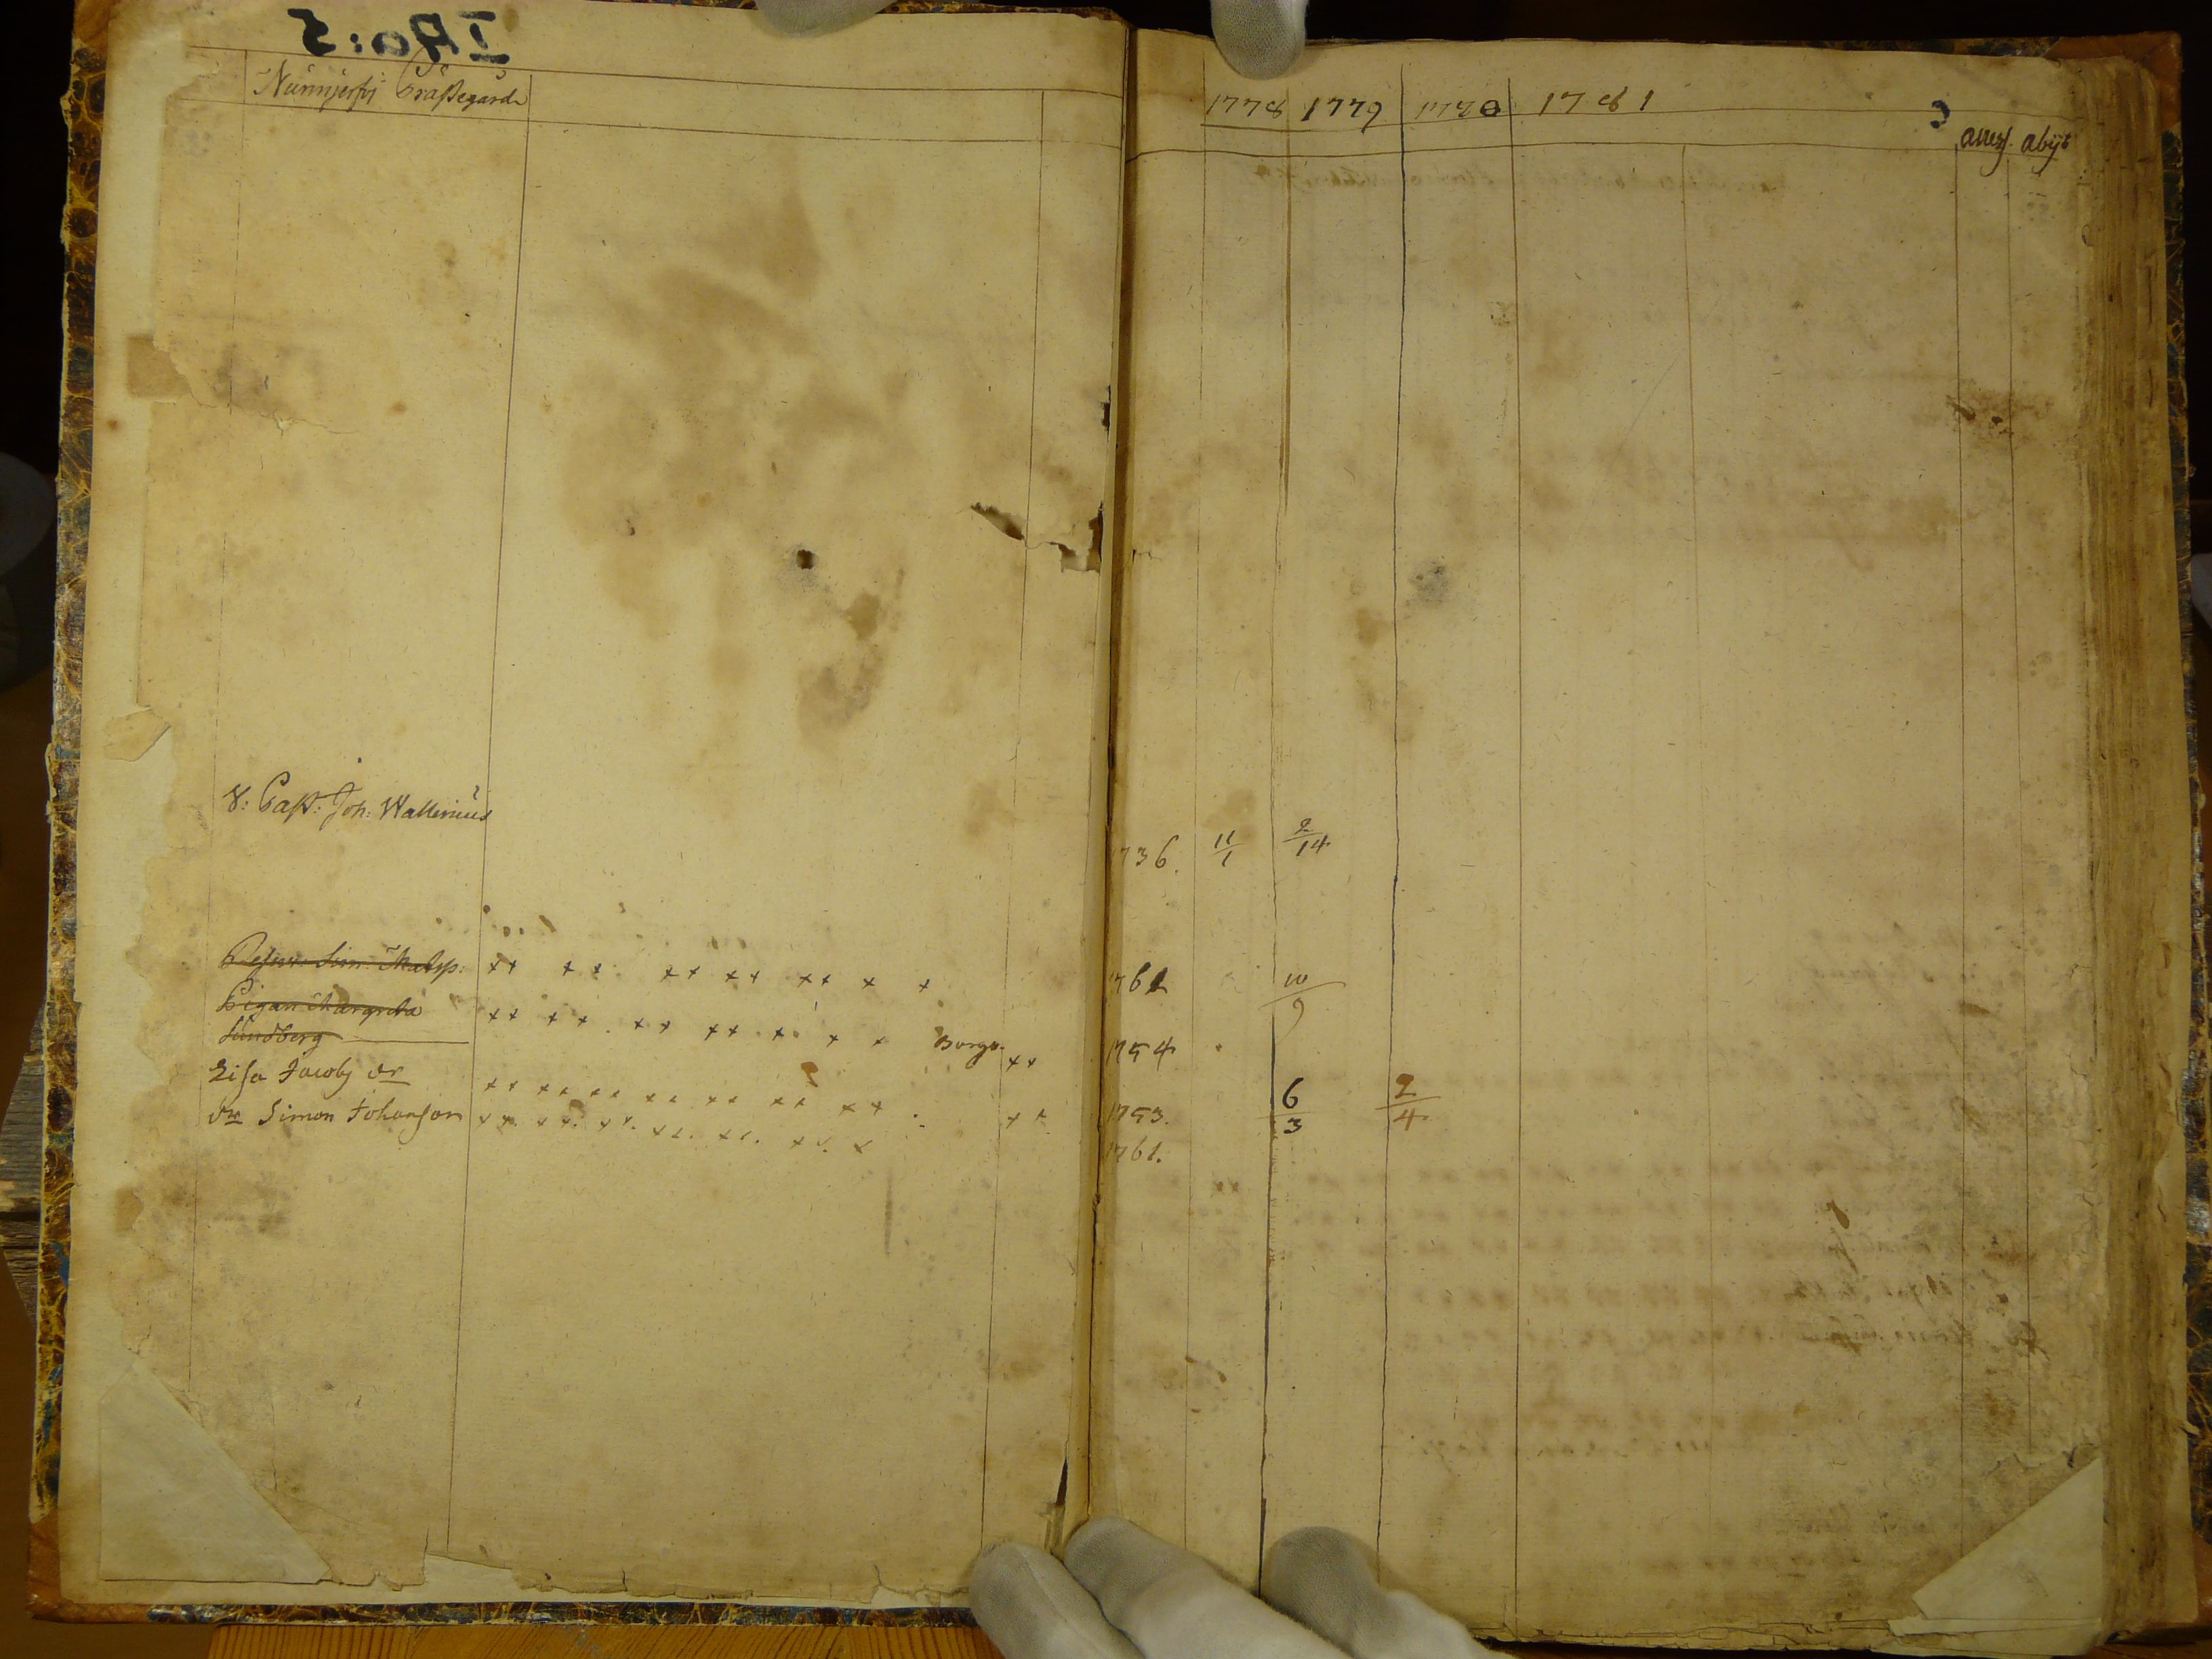 I Aa:5
Nummjerfvi Präste gård
1778 1779 1780 1781
annot. abijt
V: Past: Joh: Wallenius
1736. 11/1 2/14
Sim: Matsp: ++ ++ ++ ++ ++ + + 1761 10/9
Pigan Margreta ++ ++ ++ ++ + + +
Sundberg Borgo. ++ 1754
Lisa Jacobs dr ++ ++ ++ ++ ++ ++ ++ ++ 1753. 6/3 2/4
dr Simon Johanson ++ ++ ++ ++ ++ ++ + 1761.